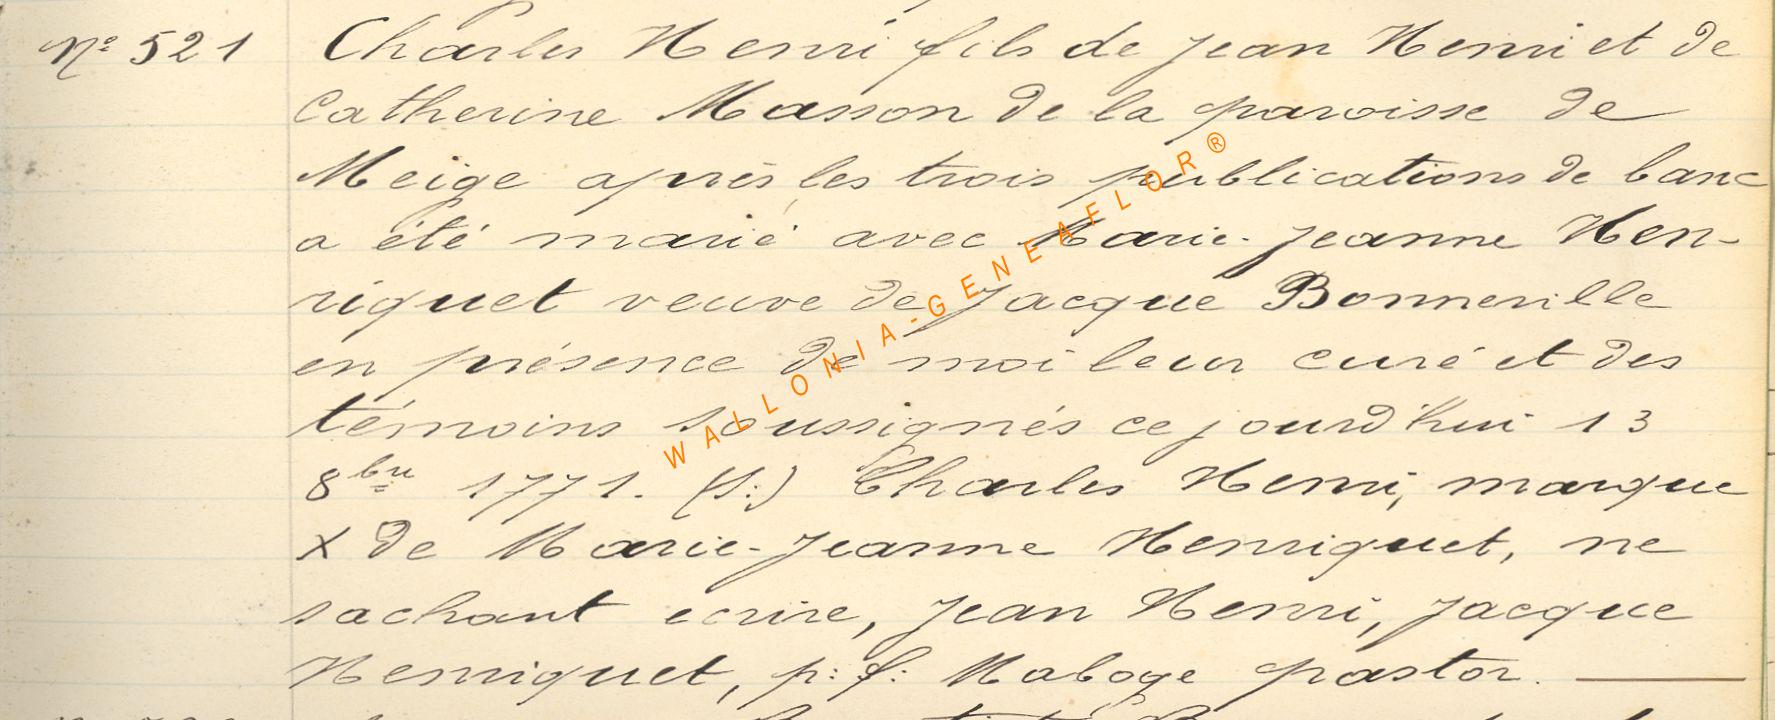 Nº 521 Charles Henri fils de Jean Henri et de
Catherine Masson de la paroisse de
Meige après les trois publications de banc
a été marié avec Marie-Jeanne Hen-
riquet veuve de Jacque Bonneville
en présence de moi leur curé et des
témoins soussignés ce jourd'hui 13
8bre 1771. (S:) Charles Henri, marque
X de Marie-Jeanne Henriquet, ne
sachant ecrire, Jean Henri, Jacque
Henriquet, p: f: Maboge pastor.
WALLONIA-GENEAFLOR®